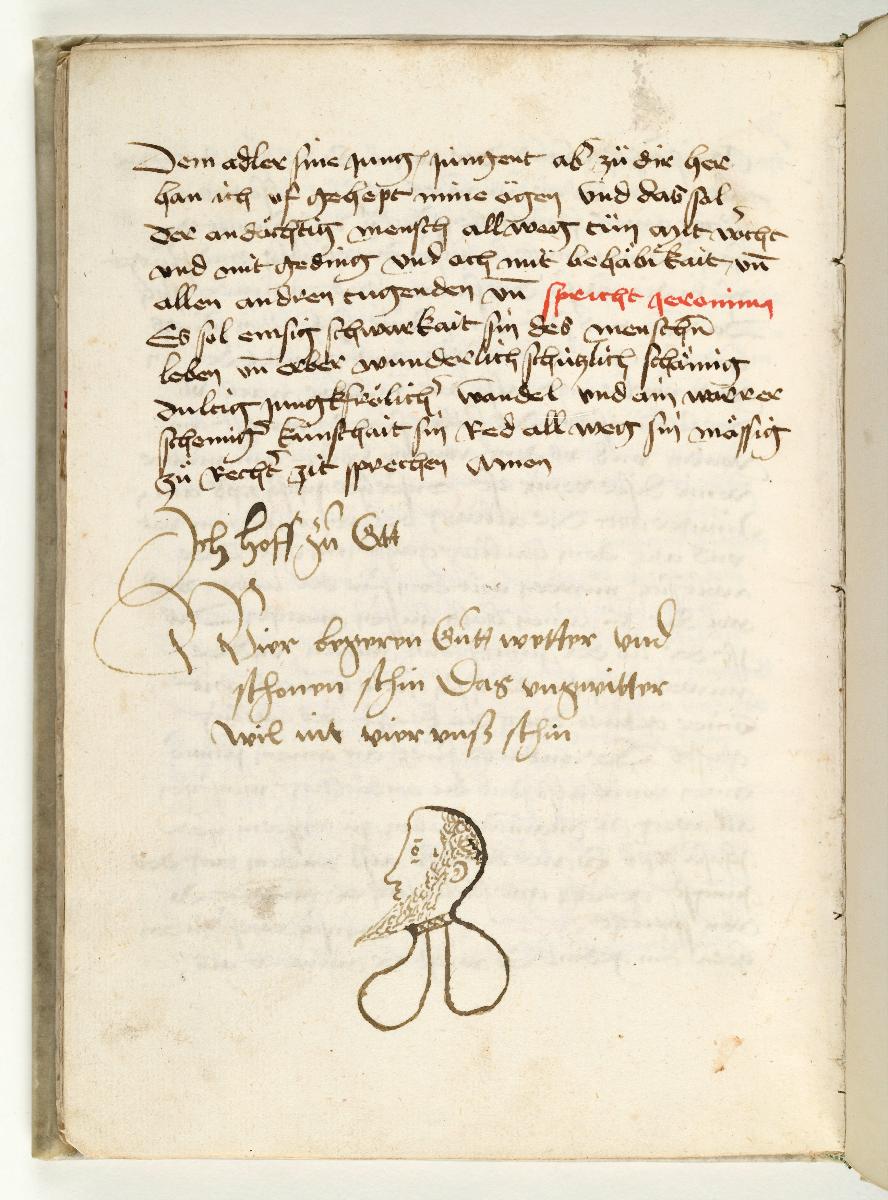 Dem adler sine jung jungent als zů dir her
han ich uf gehept mine ögen vnd das sol
Der andächtig mensch allweg tůn mit vorcht
und mit geding vnd och mit behäbikait vn̄
allen andren tugenden vn̄ spricht jeronimus
Es sol emsig schwarkait sin des menschn̄
leben vn̄ erber wunderlich schützlich schämig
Dultig jungkfrölich wandel vnd ain warer
schemig künschait sin Red allweg sin mässig
zů Rechter zit sprechen Amen
Ich hoff zů Gott
Wier begeren Gutt wetter vnd
schonen schin Das vngwitter
wil nit vier vnss schin